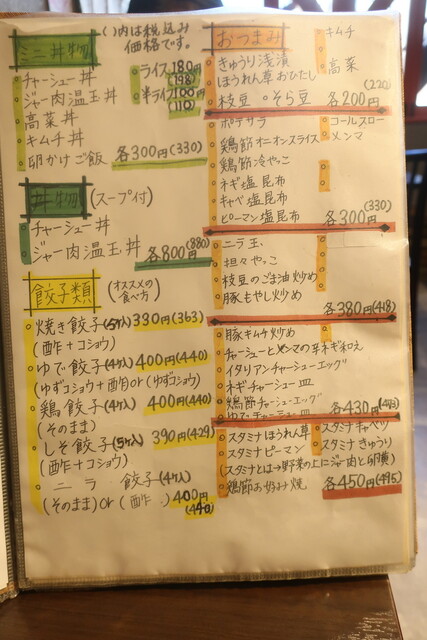 ミニ丼物
( )内は税込み
価格です。
チャーシュー丼
ジャー肉温玉丼
高菜丼
キムチ丼
卵かけご飯
各300円(330)
ライス180円
(198)
半ライス100円
(110)
丼物
(スープ付)
チャーシュー丼
ジャー肉温玉丼
各800円(880)
餃子類
(オススメの
食べ方)
焼き餃子(5ケ入)330円(363)
(酢+コショウ)
ゆで餃子(4ケ入)400円(440)
(ゆずコショウ+醤油or(ゆずコショウ)
鶏餃子(4ケ入)400円(440)
(そのまま)
しそ餃子(5ケ入)390円(429)
(酢+コショウ)
ニラ餃子(4ケ入)
(そのまま)or(酢 )400円
(440)
おつまみ
キムチ
きゅうり浅漬
高菜
ほうれん草おひたし
枝豆 そら豆
(220)
各200円
ポテサラ
コールスロー
鶏節オニオンスライス
メンマ
鶏節冷やっこ
ネギ塩昆布
キャベ塩昆布
ピーマン塩昆布
(330)
各300円
ニラ玉
担々やっこ
枝豆のごま油炒め
豚もやし炒め
各380円(418)
豚キムチ炒め
チャーシューとメンマの辛ネギ和え
イタリアンチャーシューエッグ
ネギチャーシュー皿
鶏節チャーシューエッグ
ゆで・チャーシュー皿
各430円(473)
スタミナほうれん草
スタミナキャベツ
スタミナピーマン
スタミナきゅうり
(スタミナとは→野菜の上にジャー肉と卵黄)
鶏節お好み焼
各450円(495)